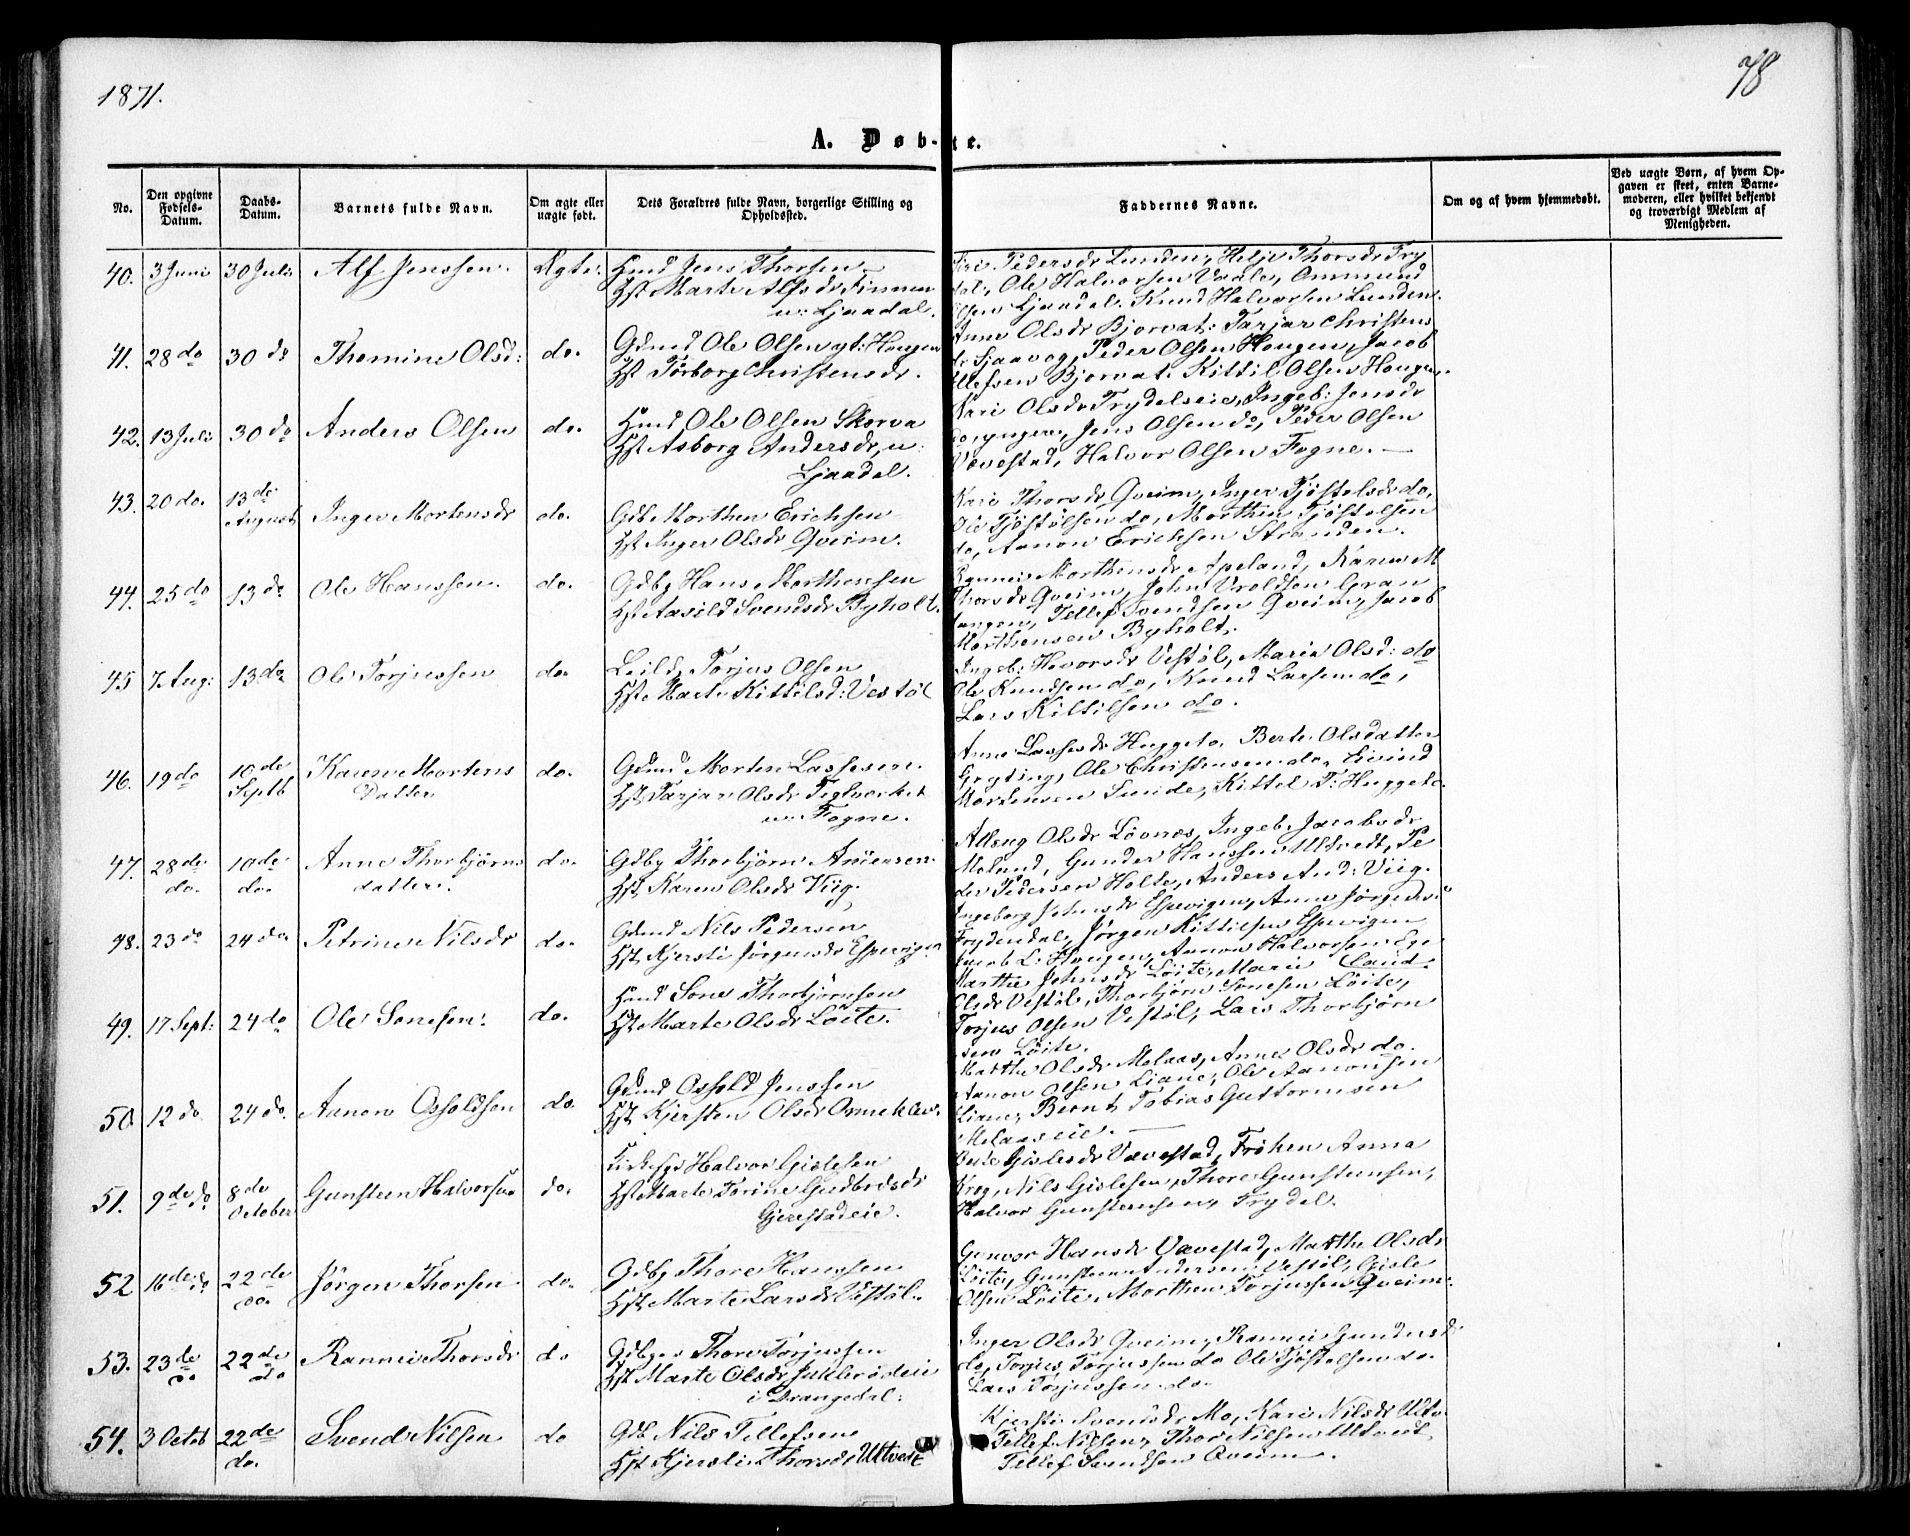 1871.
78
A. Døb-
te.
No.
Den opgivne Fødsels-Datum.
Daabs-Datum.
Barnets fulde Navn.
Om ægte eller uægte født.
Dets Forældres fulde Navn, borgerlige Stilling og Opholdssted.
Faddernes Navne.
Om og af hvem hjemmedøbt.
Ved uægte Børn, af hvem Opgaven er skeet, enten Barnemoderen, eller hvilket bekjendt og troværdigt Medlem af Menigheden.
40. 3 Juni 30 Juli Alf Jenssen. Ægte. Hmd Jens Thorsen
Hst Marte Alfsdr Finmen
u: Ljaadal.
Pedersdr Lunden, Helje Thorsdr Try
dal, Ole Halvorsen Vaale, Ommund
Olsen Ljaadal. Knud Halvorsen Lunden.
41. 28 do 30 do Thomine Olsd: do. Gdmd Ole Olsen Hougen
Hst Torborg Christensdr.
Anne Olsdr Bjorvat: Tarjar Christens
dr Sjaavog, Peder Olsen Hougen, Jacob
Ellefsen Bjorvat. Kittil Olsen Hougen.
42. 13 Juli 30 do Anders Olsen do. Hmd Ole Olsen Skorva
Hst Asborg Andersdr, u.
Ljaadal.
Kari Olsdr Trydalseie, Ingeb: Jensdr
do, yngere, Jens Olsen do, Peder Olsen
Vævestad, Halvor Olsen Fogne.
43. 20 do. 13de August Inger Mortensdr do. Gdb Morthen Erichsen
Hst Inger Olsdr Qveim.
Kari Thorsdr Qveim, Inger Tjøstelsdr do,
Ole Tjøstølsen do, Morthen Tjøstølsen
do, Aanon Erichsen Stranden.
44. 25 do 13 do Ole Hanssen. do. Gdbg Hans Morthensen
Hst Aasild Svendsdr Byholt.
Rannei Morthensdr Apeland, Karen M
Thorsdr Qveim, John Vroldsen Gran
langen, Tellef Svendsen Qveim, Jacob
Morthensen Byholt.
45 7 Aug: 13 do Ole Torjussen do. Leild. Torjus Olsen
Hst. Marte Kittilsd: Vestøl
Ingeb: Hovorsdr Vestøl, Maria Olsd: do
Ole Knudsen do, Knud Larsen do,
Lars Kittilsen do.
46. 19 do 10de Septb Karen Mortens
Datter do. Gdmd Morten Lassesen.
Hst. Tarjar Olsdr Teglverket
u: Fogne.
Anne Lassesdr Huggeto, Berte Olsdatter
Gryting, Ole Christensen do, Eivind
Mortensen Sunde, Kittel T: Huggeto.
47. 28de do. 10de do. Anne Thorbjørns
datter. do. Gdbg Thorbjørn Andersen
Hst. Karen Olsdr Viig.
Olsdr Løvnes, Ingeb. Jacobsdr
Melund, Gunder Hanssen Ultvedt, Pe
der Pedersen Holte, Anders And: Viig.
48. 23 do 24 do. Petrine Nilsdr do. Gdmd Nils Pedersen
Hst. Kjersti Jørgensdr Espevigen
Ingeborg Johnsdr Espevigen, Anne Jørgensdr
Frydendal, Jørgen Kittilsen Espevigen
Jacob L: Hougen, Aanon Halvorsen Ege
land.
49. 17 Sept: 24 do Ole Sønesen. do. Hmd Søne Thorbjørnsen
Hst. Marte Olsdr Løite.
Marthe Johnsdr Løite, Marie
Olsdr Vestøl, Thorbjørn Sønesen Løite,
Torjus Olsen Vestøl, Lars Thorbjørn
sen Løite.
50. 12 do 24 do. Aanon Osfoldsen do. Gdmd Osfold Jenssen
Hst. Kjersten Olsdr Ormeklev.
Marthe Olsdr Melaas, Anne Olsdr do.
Aanon Olsen Liane, Ole Aanonsen
Liane, Bernt Tobias Guttormsen
Melaaseie.
51. 9de do 8de October Gunsteen Halvorsen do. Kirkesgr Halvor Gislesen
Hst. Marte Torine Gudbrdsdr
Gjerestadeie.
Berte Gislesdr Vævestad, Frøken Anna
Krog, Nils Gislesen, Thore Gunsteensen,
Halvor Gunsteensen, Trydal.
52 16de do 22de do. Jørgen Thorsen do. Gdbg Thore Hanssen
Hst. Marte Larsdr Vestøl.
Gunvor Hansdr Vævestad, Marthe Olsdr
Løite, Gunsteen Andersen Vestøl, Gisle
Olsen Løite, Morthen Torjussen Qveim.
53. 23de do 22de do Rannei Thorsdr do Gdbges Thore Torjussen
Hst. Marte Olsdr Juklerødeie
i Drangedal.
Inger Olsdr Qveim, Rannei Gundersdr
do, Torjus Torjussen do Ole Tjøstelsen do.
Lars Torjussen do.
54. 3 Octob 22de do. Svend Nilsen do Gdb Nils Tellefsen
Hst. Kjersti Thorsdr Ultvedt
Kjersti Svendsdr Mo, Kari Nilsdr Ultv.
Tellef Nilsen, Thor Nilsen Ultvedt
Tellef Svendsen Qveim.